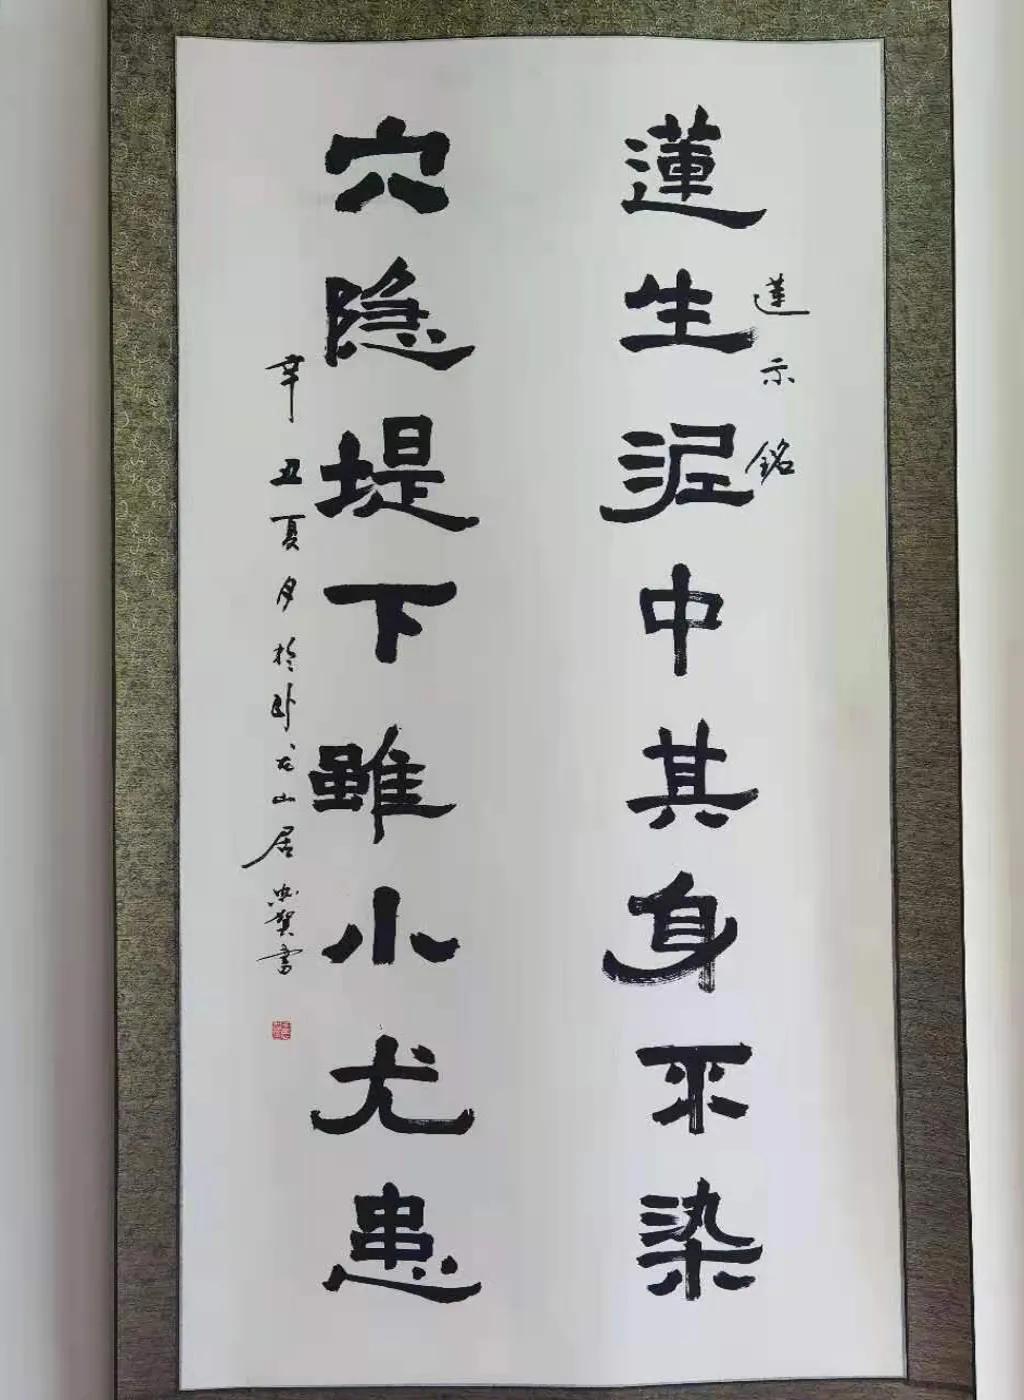 蓮生泥中其身不染
蓮示銘
穴隐堤下雖小尤患
辛丑夏月於卧龙山居 賀書